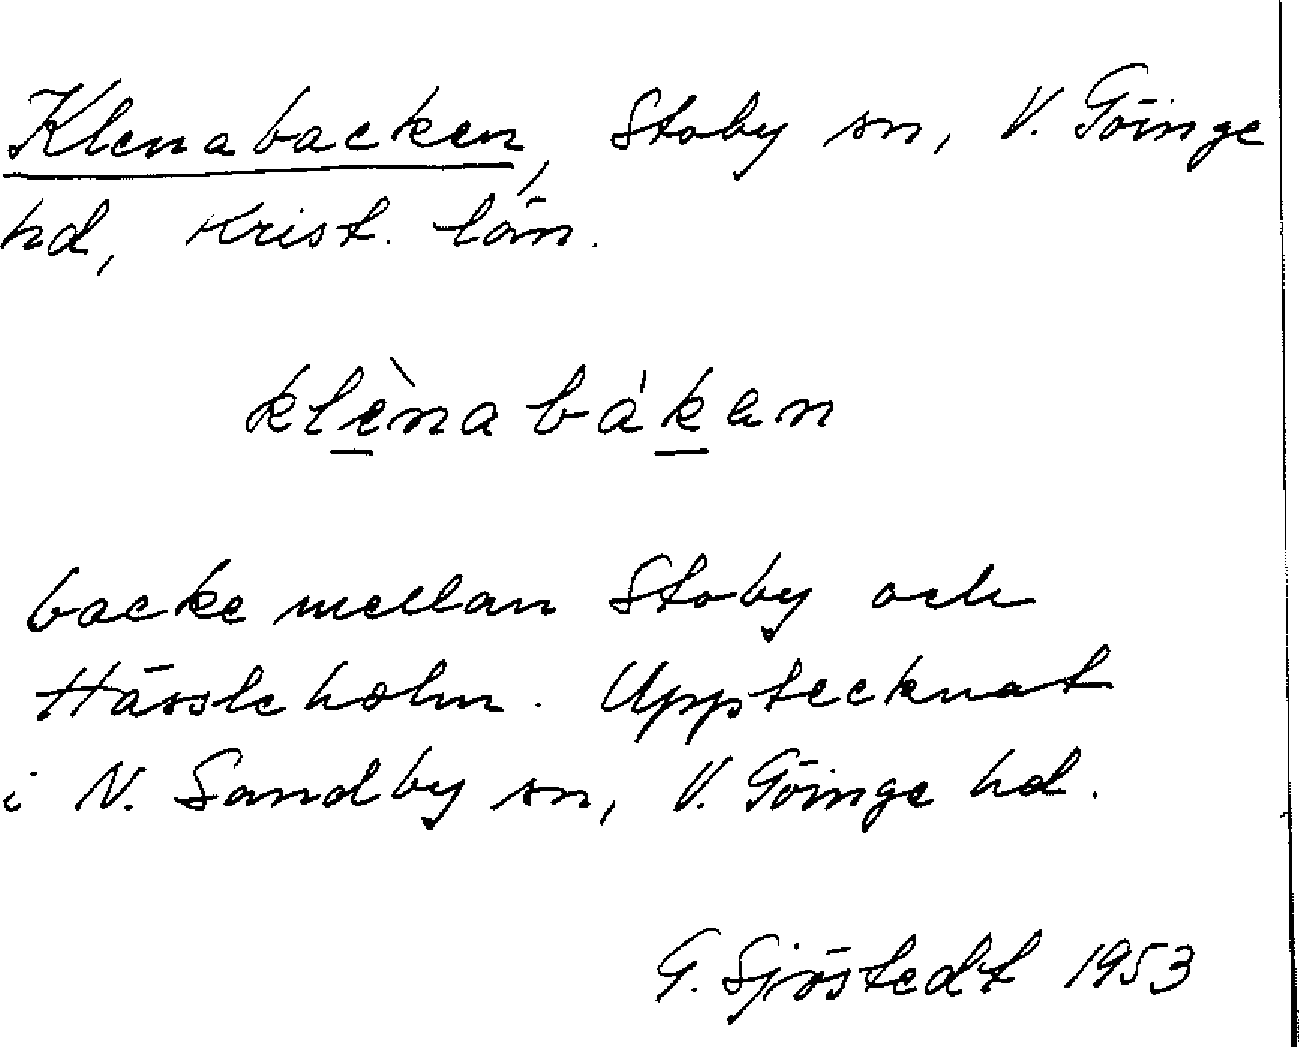 Klenabacken, Stoby sn, V. Göinge
hd, Krist. län.
klènabákan
backe mellan Stoby och
Hässleholm. Upptecknat
i N. Sandby sn, V. Göinge hd.
G. Sjöstedt 1953